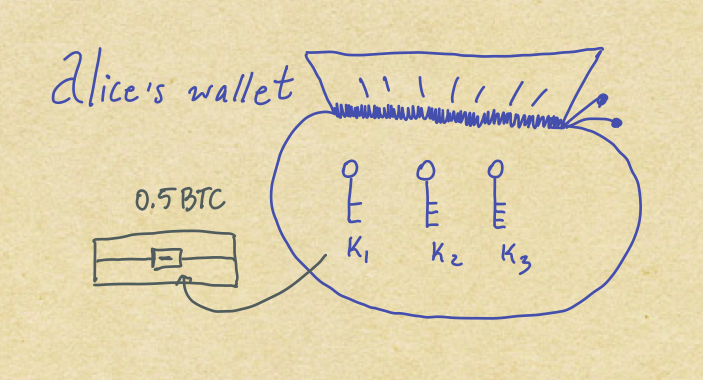 Alice's wallet
0.5 BTC
K1
K2
K3